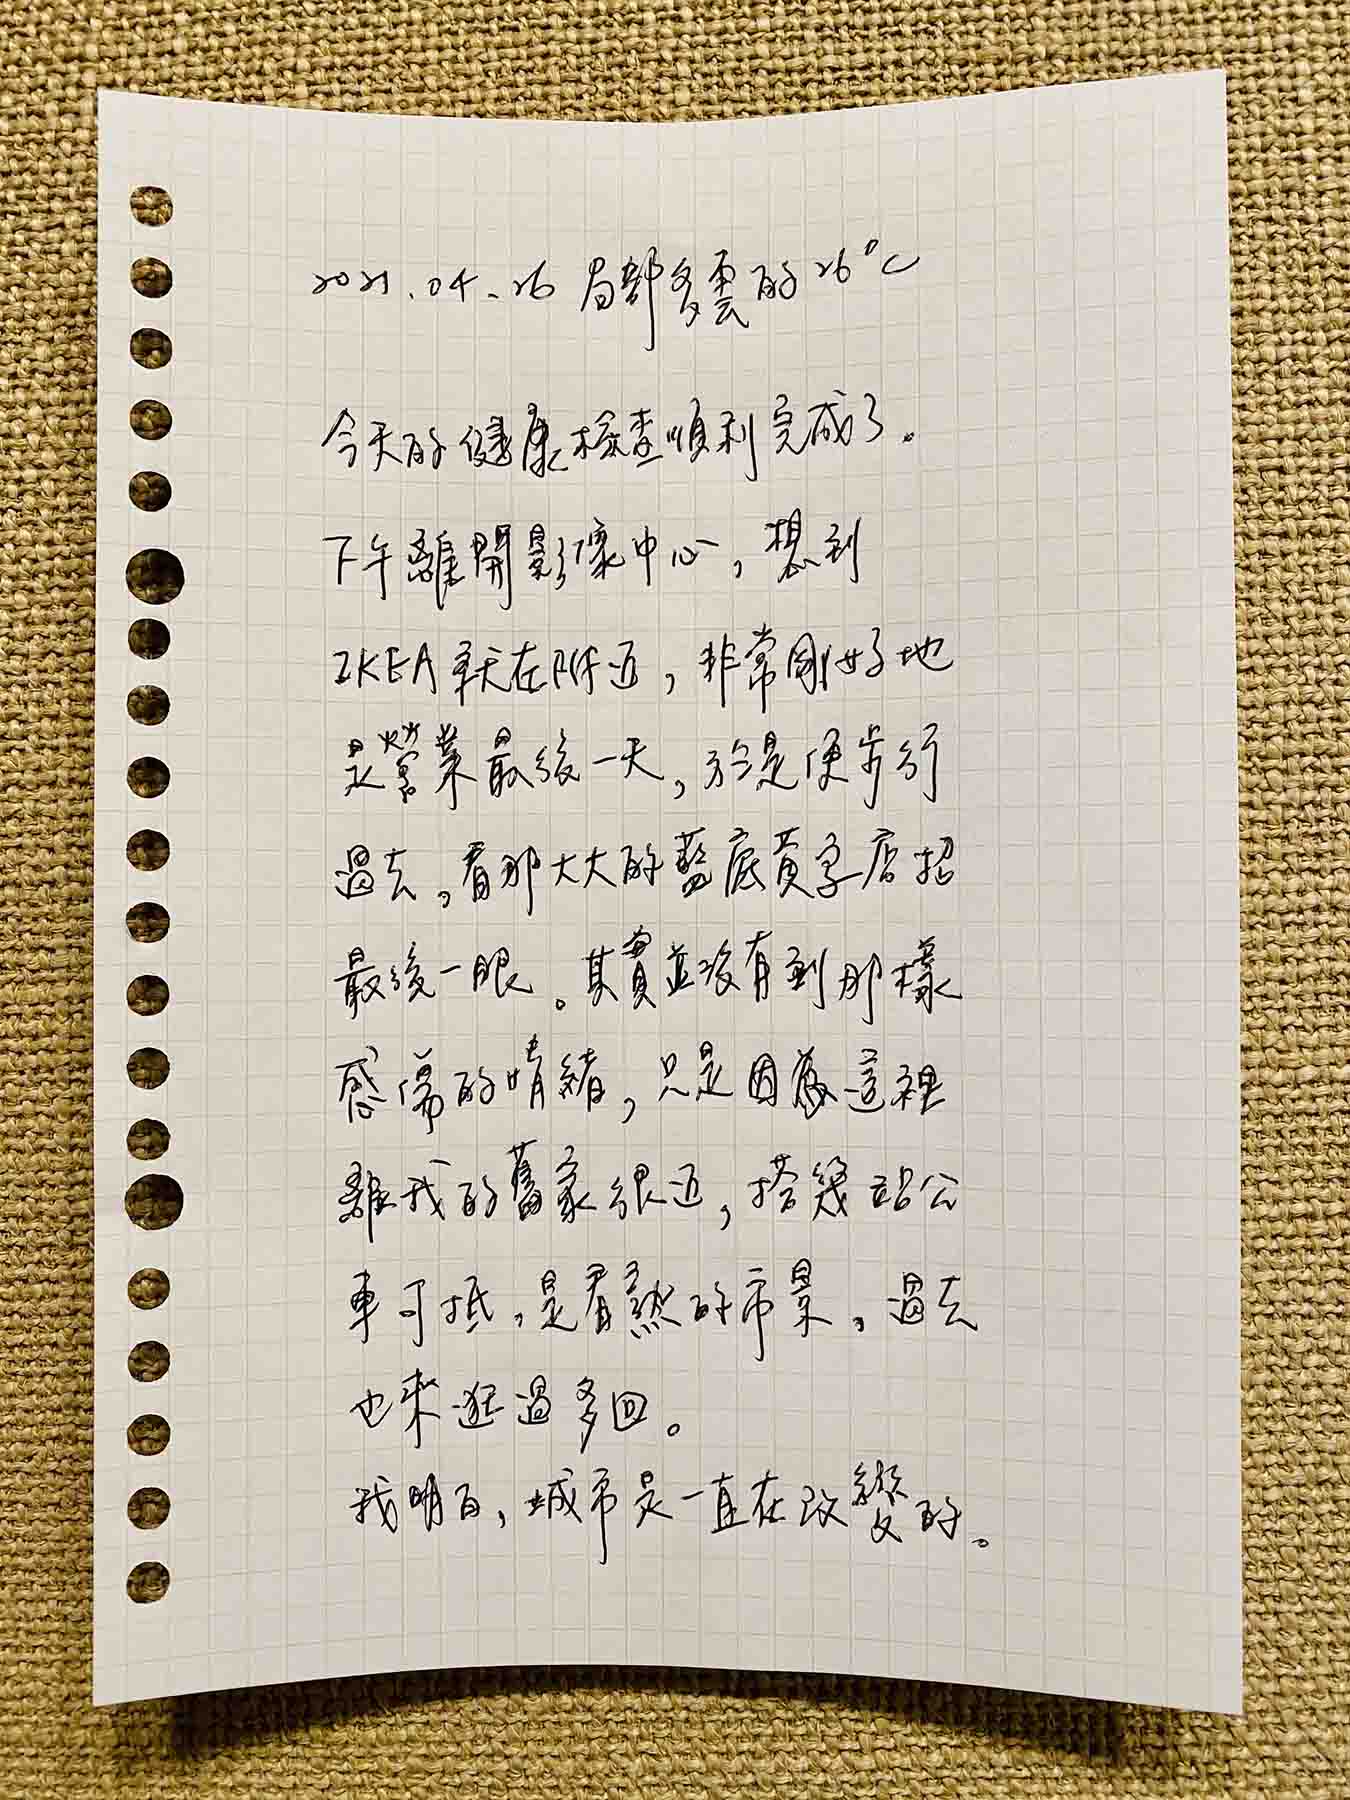 2021.04.26 局部多雲的26°C
今天的健康檢查順利完成了。
下午離開影像中心，想到
IKEA就在附近，非常剛好地
是營業最後一天，於是便步行
過去，看那大大的藍底黃字店招
最後一眼。其實並沒有到那樣
感傷的情緒，只是因為這裡
離我的舊家很近，搭幾站公
車可抵，是看熟的市景，過去
也來逛過多回。
我明白，城市是一直在改變的。